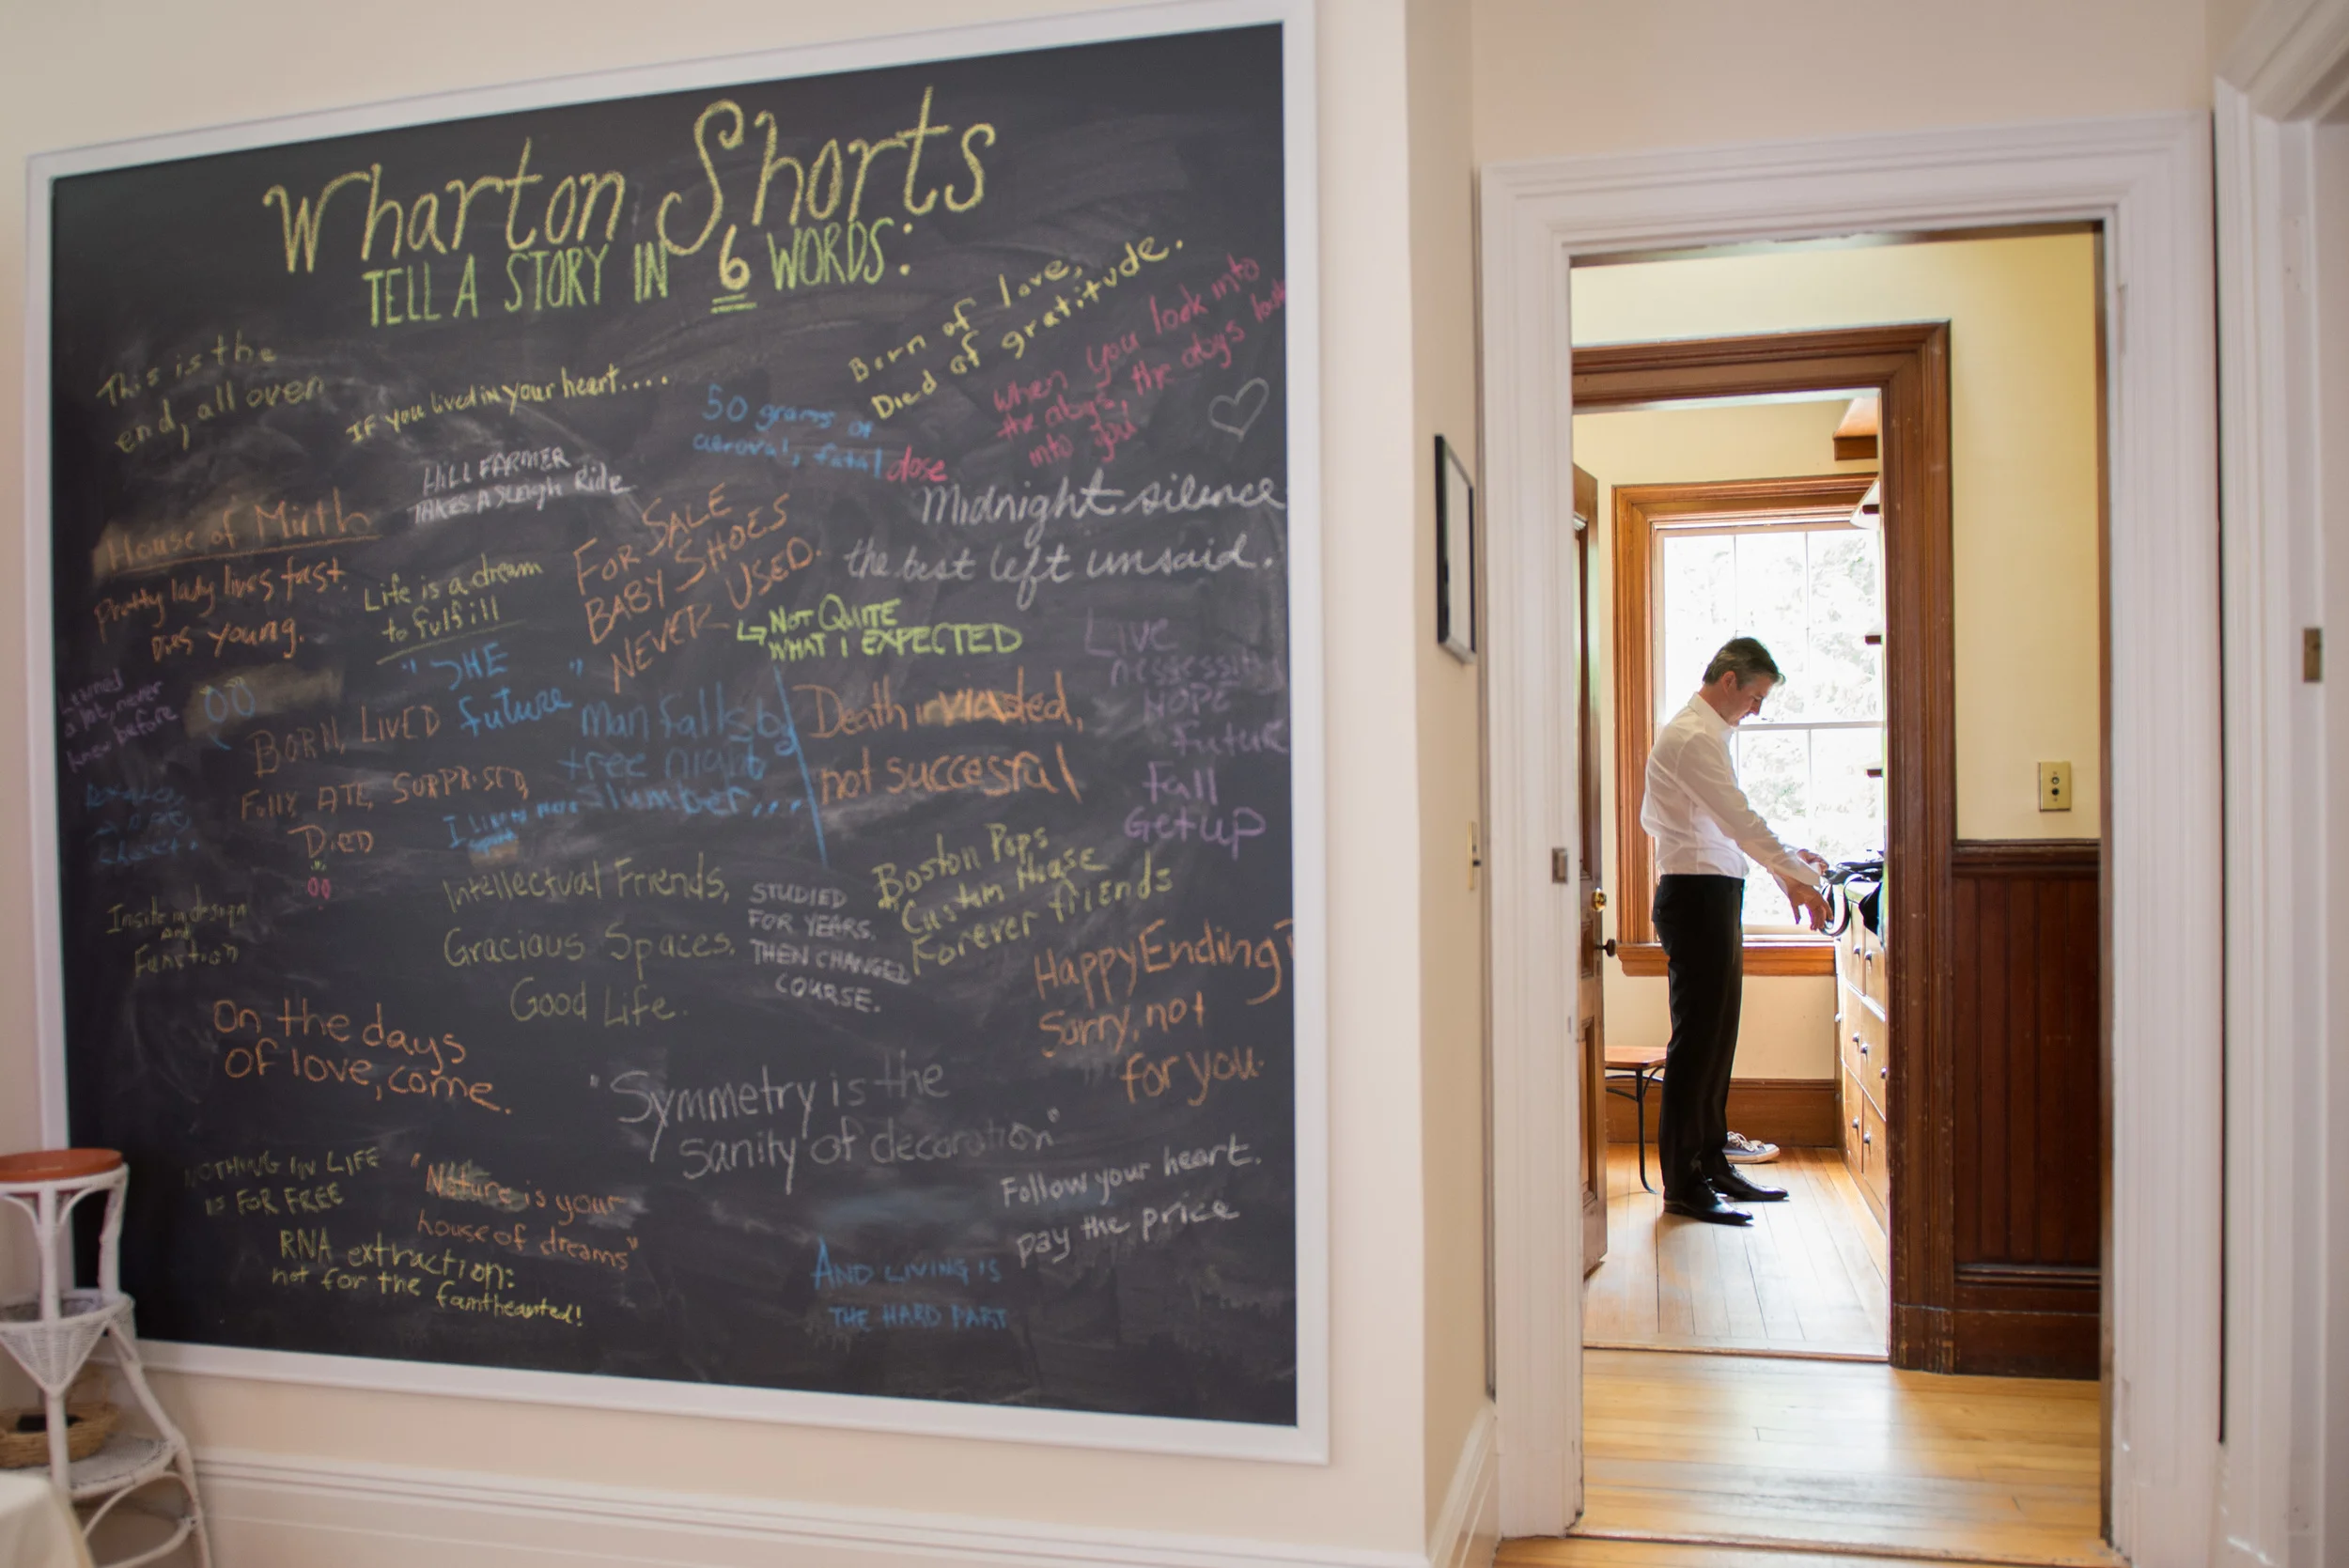 Wharton Shorts
TELL A STORY IN 6 WORDS:
This is the
end, all over
IF you lived in your heart....
Born of love,
Died of gratitude.
When you look into
the abys, the abys look
into you
50 grams of
fatal dose
HILL FARMER
TAKES A Sleigh Ride
Midnight silence
the best left unsaid.
House of Mirth
Pretty lady lives fast.
Dies young.
Life is a dream
to fulfill
FOR SALE
BABY SHOES
NEVER USED.
NOT QUITE
WHAT I EXPECTED
"SHE
future"
Learned
a lot, never
knew before
BORN, LIVED
ATE, SURPRISED,
DIED
Man falls by
tree night
slumber...
Death inviasted,
not succesful
Live
nessessity
HOPE
Future
Fall
Get up
Inside
and
Function
Intellectual Friends,
Gracious Spaces.
Good Life.
STUDIED
FOR YEARS.
THEN CHANGED
COURSE.
Boston Pops
Custom House
Forever friends
Happy Ending?
Sorry, not
for you.
On the days
of love, come.
"Symmetry is the
sanity of decoration"
NOTHING IN LIFE
IS FOR FREE
"Nature is your
house of dreams"
RNA extraction:
not for the fainthearted!
Follow your heart.
pay the price
AND LIVING IS
THE HARD PART